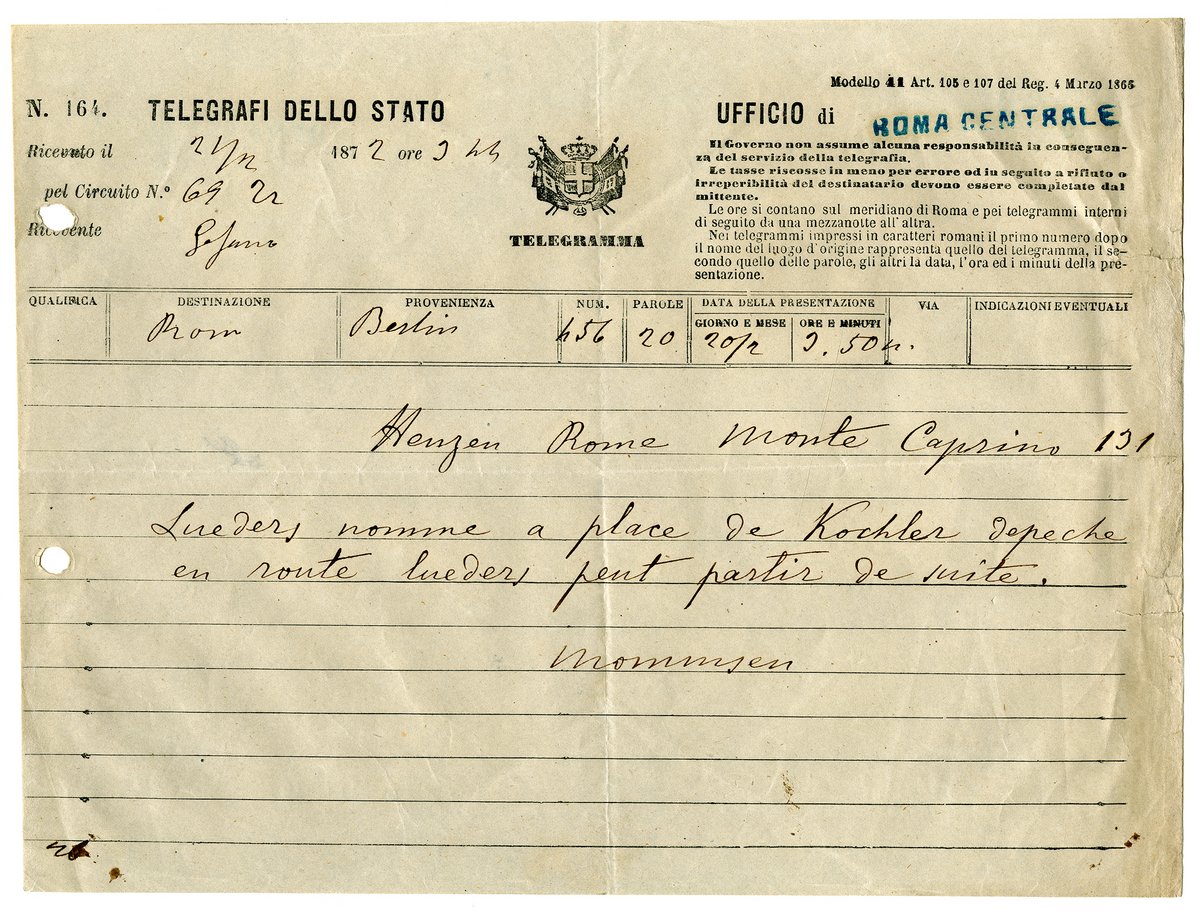 Modello 41 Art. 105 e 107 del Reg. 4 Marzo 1865
N. 164. TELEGRAFI DELLO STATO
UFFICIO di ROMA CENTRALE
Ricevuto il 21/2 1872 ore 9 44
pel Circuito N.º 69 22
Ricevente
TELEGRAMMA
Il Governo non assume alcuna responsabilità in conseguen-
za del servizio della telegrafia.
Le tasse riscosse in meno per errore od in seguito a rifiuto o
irreperibilità del destinatario devono essere completate dal
mittente.
Le ore si contano sul meridiano di Roma e pei telegrammi interni
di seguito da una mezzanotte all'altra.
Nei telegrammi impressi in caratteri romani il primo numero dopo
il nome del luogo d'origine rappresenta quello del telegramma, il se-
condo quello delle parole, gli altri la data, l'ora ed i minuti della pre-
sentazione.
QUALIFICA DESTINAZIONE PROVENIENZA NUM. PAROLE DATA DELLA PRESENTAZIONE VIA INDICAZIONI EVENTUALI
GIORNO E MESE ORE E MINUTI
Rom Berlin 456 20 20/2 9.50
Henzen Rome Monte Caprino 131
Lueders nomme a place de Kochler depeche
en route lueders peut partir de suite.
Mommsen